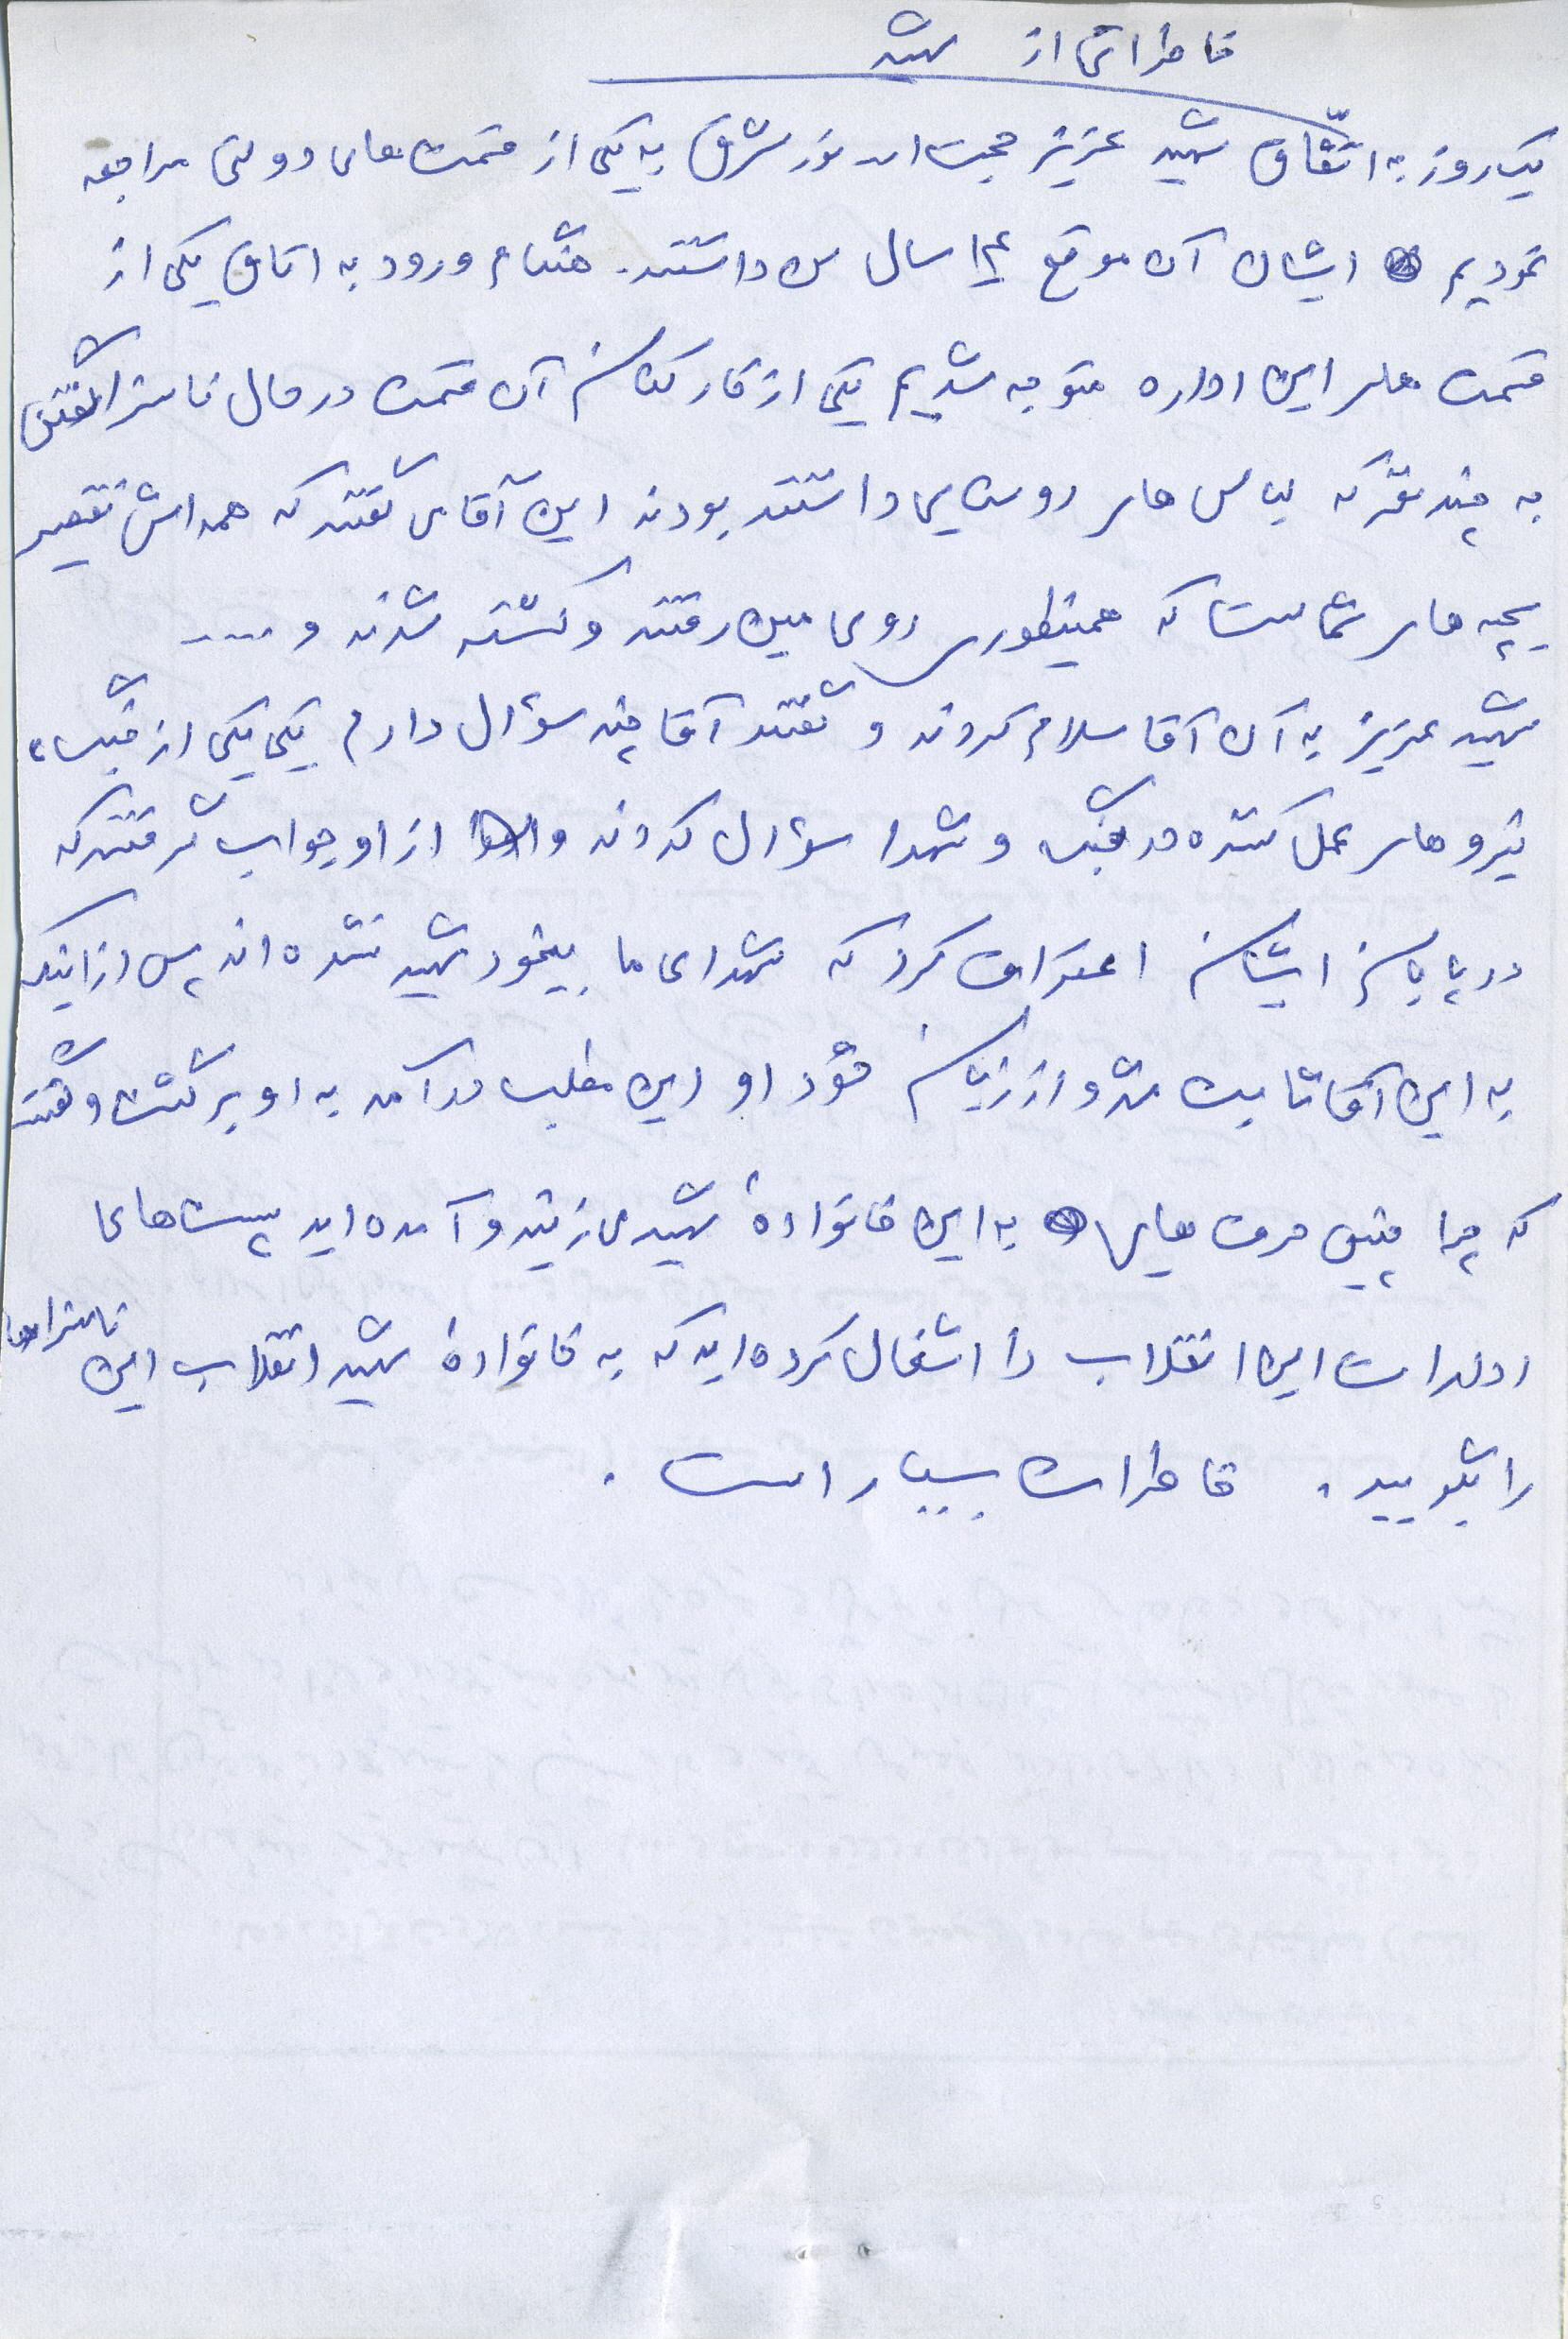 خاطراتی از شهید
یک روز به اتّفاق شهید عزیز حجت اله نورشرق به یکی از قسمت های دولتی مراجعه
نمودیم ایشان آن موقع سال سن داشتند. هنگام ورود به اتاق یکی از
قسمت های این اداره متوجه شدیم یکی از کارکنان آن قسمت در حال ناسزا گفتن
به چند نفر که لباس های روستایی داشتند بودند این آقا می گفتند که همه اش تقصیر
بچه های شماست که همینطوری روی مین رفتند و کشته شدند و .....
شهید عزیز به آن آقا سلام کردند و گفتند آقا چند سؤال دارم یکی یکی از جنگ،
نیروهای عمل کننده در جنگ و شهدا سؤال کردند و از او جواب گرفتند که
در پایان ایشان اعتراف کرد که شهدای ما بیخود شهید نشده اند پس از اینکه
به این آقا ثابت شد و از زبان خود او این مطلب در آمد به او برگشت و گفتند
که چرا چنین حرف هایی به این خانوادهٔ شهید می زنید و آمده اید پست های
ادارات این انقلاب را اشغال کرده اید که به خانوادهٔ شهید انقلاب این ناسزاها
را بگویید. خاطرات بسیار است.